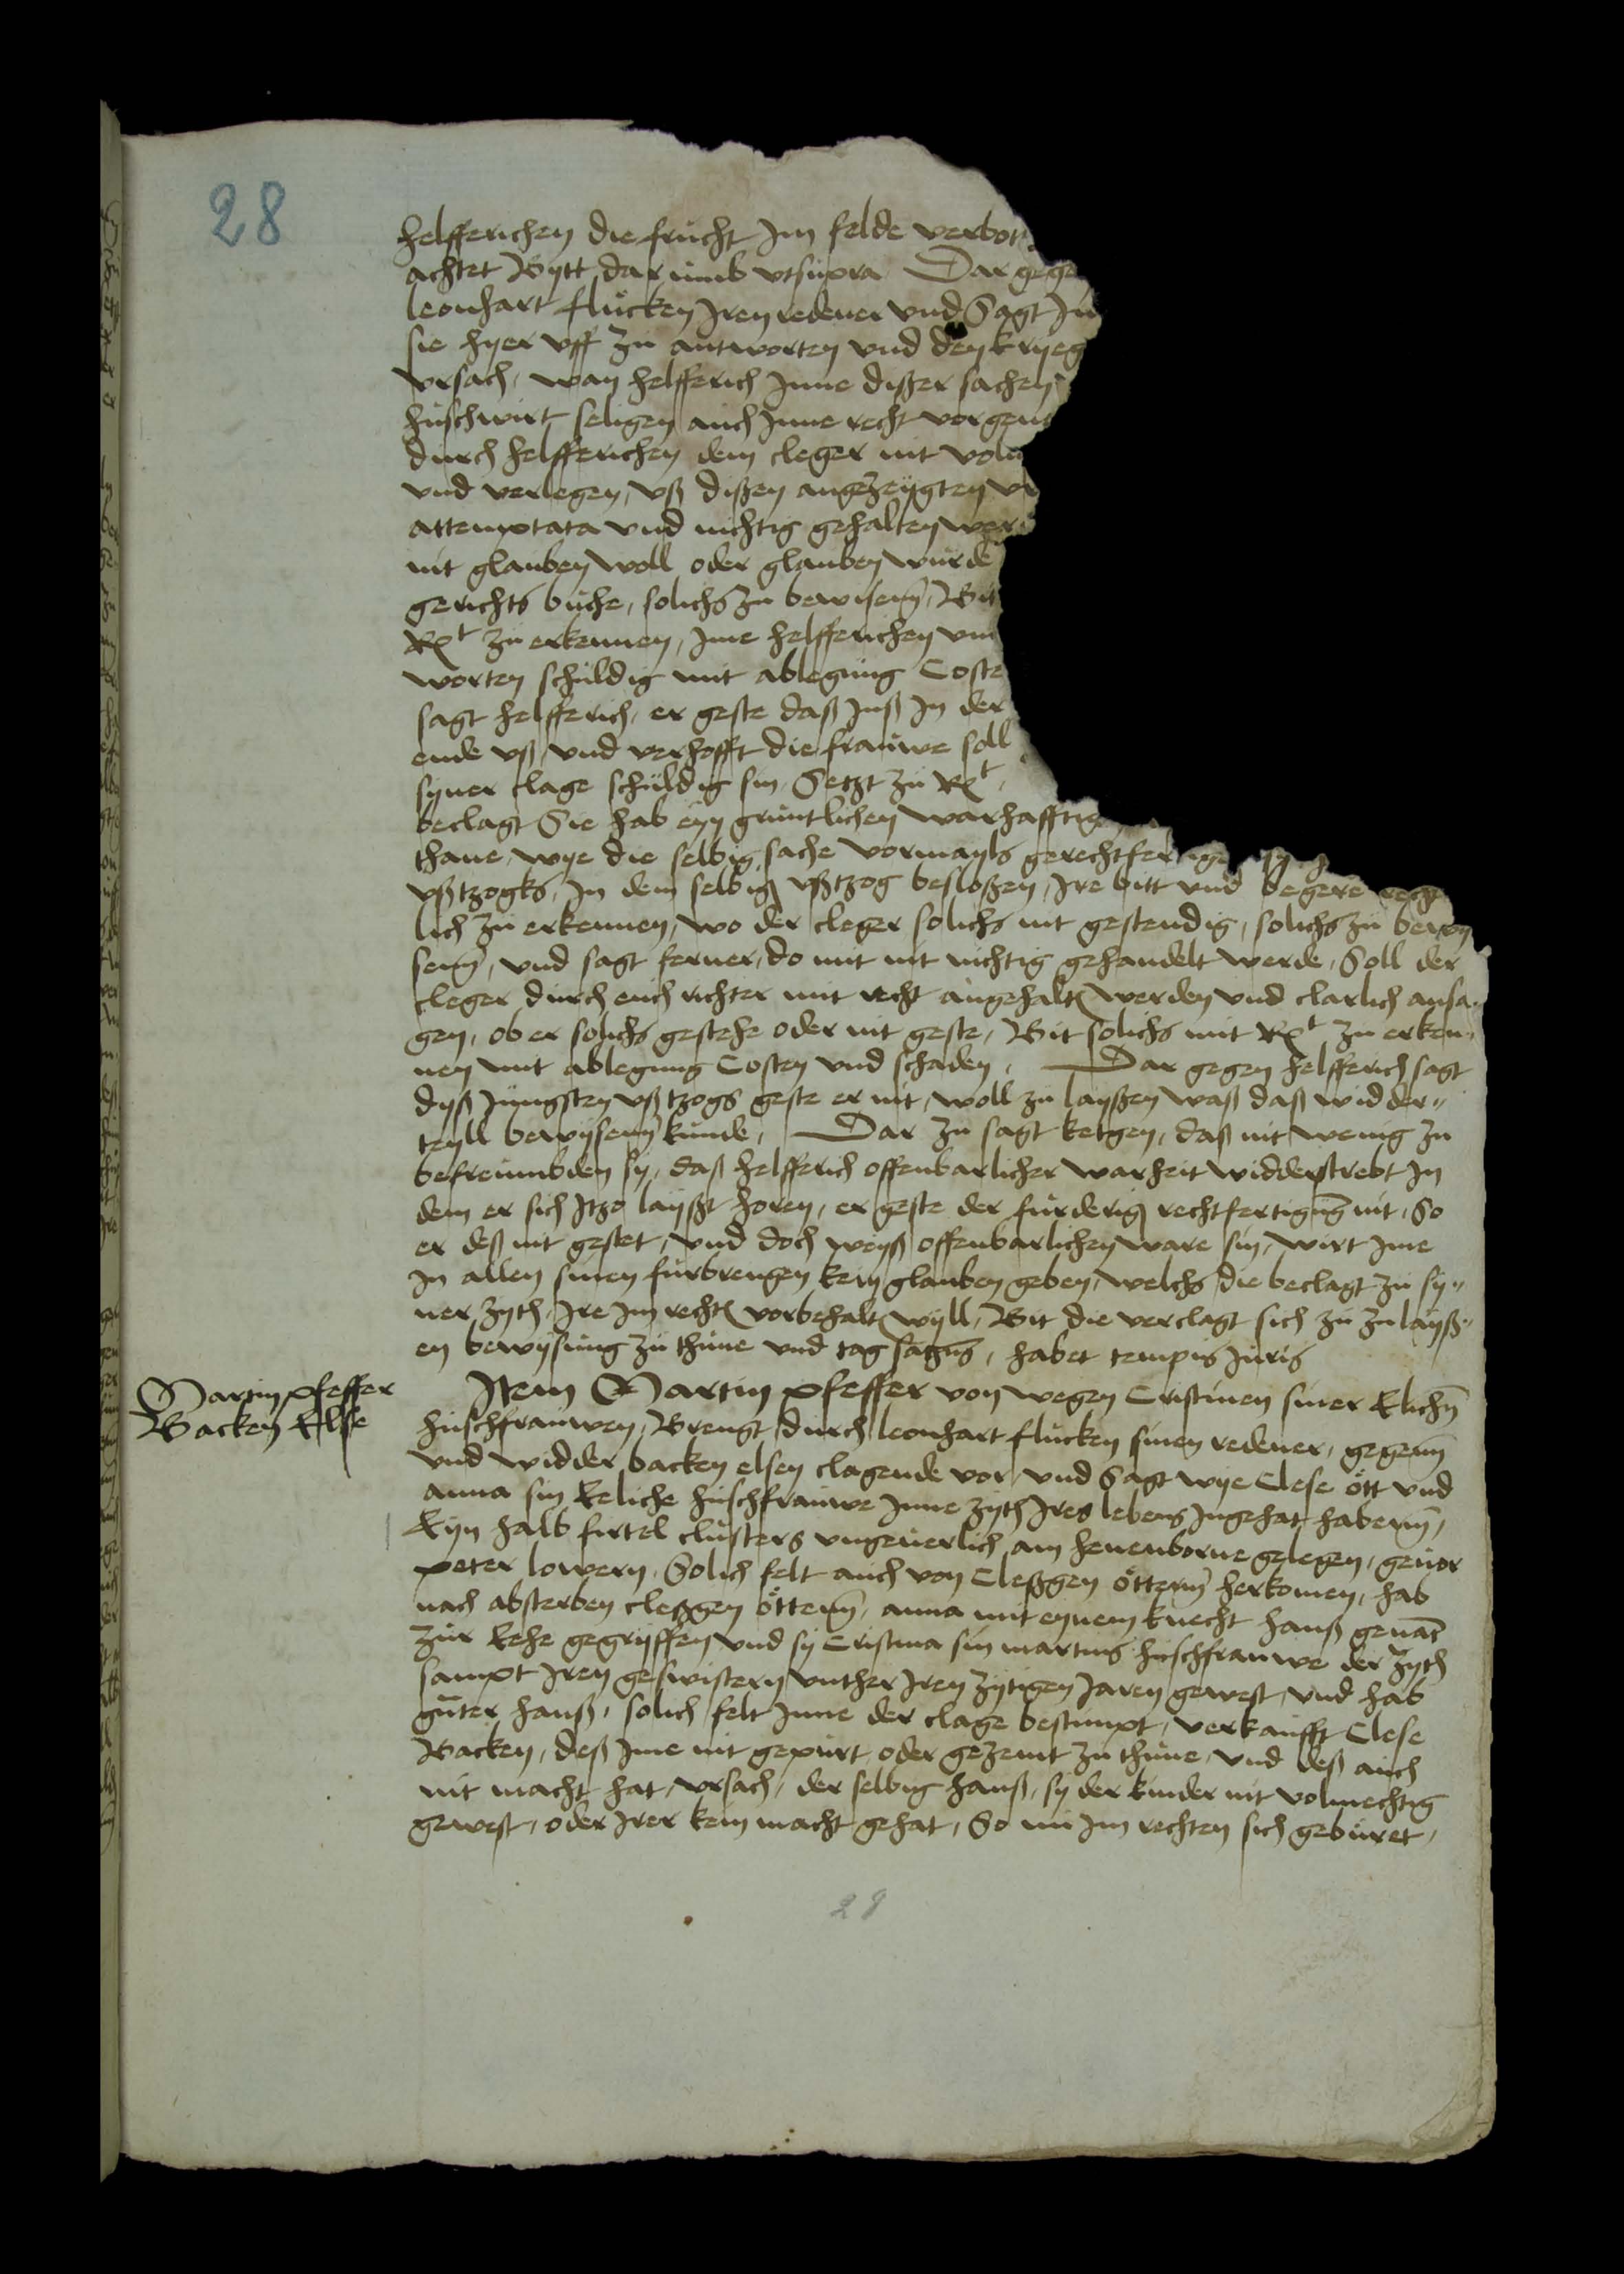 28
helfferichen die frucht Im felde verbot
achtet Bytt dar umb utsupra Dar gege
leonhart flucken Iren redener und Sagt In
sie hyer uff zu antworten und den kryeg
ursach, wan helfferich Inne dißer sachen
hußwirt seligen auch Inne recht vorgen
durch helfferichen dem cleger nit
und verlegen, uß dißen angezeygten
attemptata und nichtig gehalten wer
nit glauben woll oder glauben wurde
gerichts buche, solichs zu bewisenn, Bit
Rxt zu erkennen, Ime helfferichen
worten schuldig mit ablegung Coste
sagt helfferich, er geste daß Inß In der
ende uß und verhofft die frauwe soll
syner clage schuldig sin, Setzt zu Rxt,
beclagt Sie hab eyn gruntlichen warhafftig
thane, wye die selbig sache vormayls
ußtzogks, In dem selbig ußtzog besloßen, Ire bitt und begere recht
lich zu erkennen, wo der cleger solichs nit gestendig, solichs zu bewy
senn, und sagt ferner, do mit nit nichtig gehandelt werde, Soll der
cleger durch euch richter mit recht angehalten werden und clarlich ansa-
gen, ob er solichs gestehe oder nit geste, Bit solichs mit Rxt zu erken-
nen mit ablegung Costen und schaden, Dar gegen helfferich sagt
dyß Jungsten ußtzogs geste er nit, woll zu layßen waß daß widder-
teyll bewysenn kunde, Dar zu sagt ketgen, daß nit wenig zu
befreumbden sy, daß helfferich offenbarlicher warheit widderstrebt In
dem er sich Itzo layßt horen, er geste der furderig rechtfertigung nit, So
er deß nit gestet, und doch weyß offenbarlichen ware sin, wirt Ime
In allen sinen furbrengen kein glauben geben, welchs die beclagt zu sy-
ner zyth, Ire Im rechten vorbehalten wyll, Bit die verclagt sich zu zulayß-
en bewysung zu thune und tag satzung, habet tempus Juris
Martin pfeffer
Backen Else
Item Martin pfeffer von wegen Cristinen siner Elichen
hußfrauwen, Brengt durch leonhart flucken sinen redener, gegenn
und widder backen elsen clagende vor, und Sagt wye Clese ött und
anna sin Eeliche hußfrauwe Inne zyth Ires lebens Ingehat habenn,
Eyn halb firtel clusters ungeuerlich am heuenborne gelegen, geuor
peter lowern, Solich felt auch von Cleßgen öttenn herkomen, hab
nach absterben cleßgen öttenn, anna mit eynem knecht hanß genant
zur Eehe gegryffen und sy Cristina sin martins hußfrauwe der zyth
sampt Iren geswistern unther Iren zytigen Jaren gewest, und hab
guter hanß, solich felt Inne der clage bestimpt, verkaufft Clese
Backen, deß Ime nit gepurt oder gezemt zu thune, und deß auch
nit macht hat, ursach, der selbig hanß, sy der kinder nit volmechtig
gewest, oder Irer kein macht gehat, So nu Im rechten sich geburet,
28